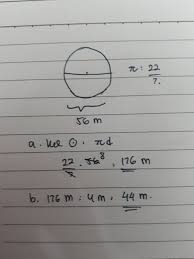 π : 22/7
56 m
a. kel ⊙ : πd
22/7 . 56 8 = 176 m
b. 176 m : 4 m = 44 m.